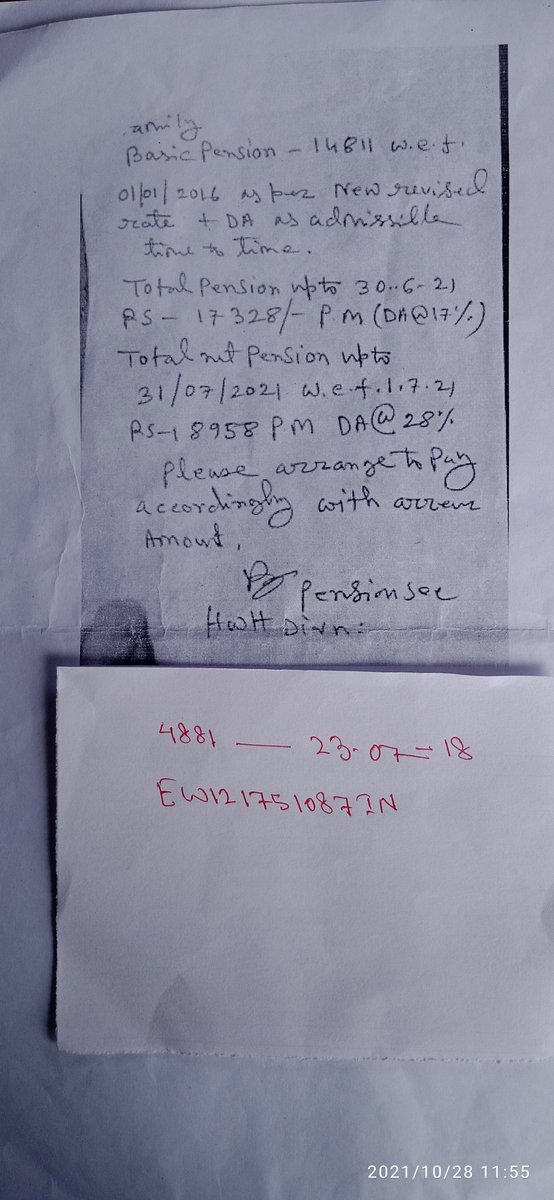 amily
Basic Pension - 14811 w.e.f.
01/01/2016 as per New revised
rate + DA as admissible
time to time.
Total Pension upto 30..6-21
RS - 17328/- P.M (DA@17%.)
Total net Pension upto
31/07/2021 w.e.f.1.7.21
RS-18958 PM DA@28%.
Please arrange to Pay
accordingly with arrear
Amount.
Pension sec
HWH Divn:
4881 — 23-07-18
EW121751087IN
2021/10/28 11:55